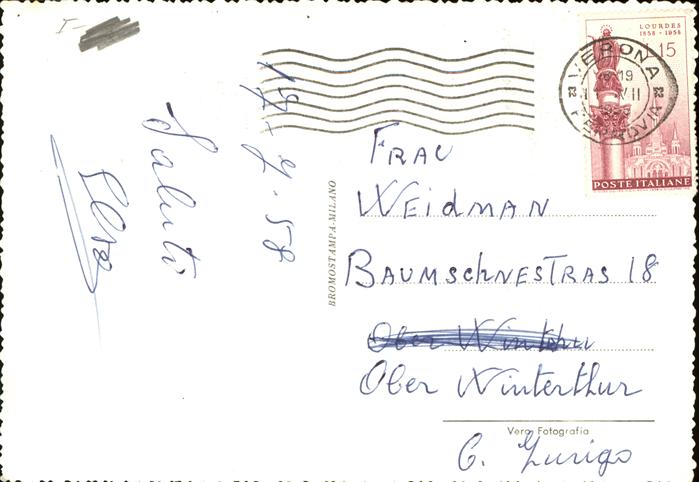 17-7-58
Saluti
Elsa
FRAU
WEIDMAN
BAUMSCHNESTRAS 18
Ober Winterthur
C. Zurigo
BROMOSTAMPA-MILANO
Vera Fotografia
LOURDES
1858 - 1958
L.15
POSTE ITALIANE
VERONA
19
VII
FERROVIA